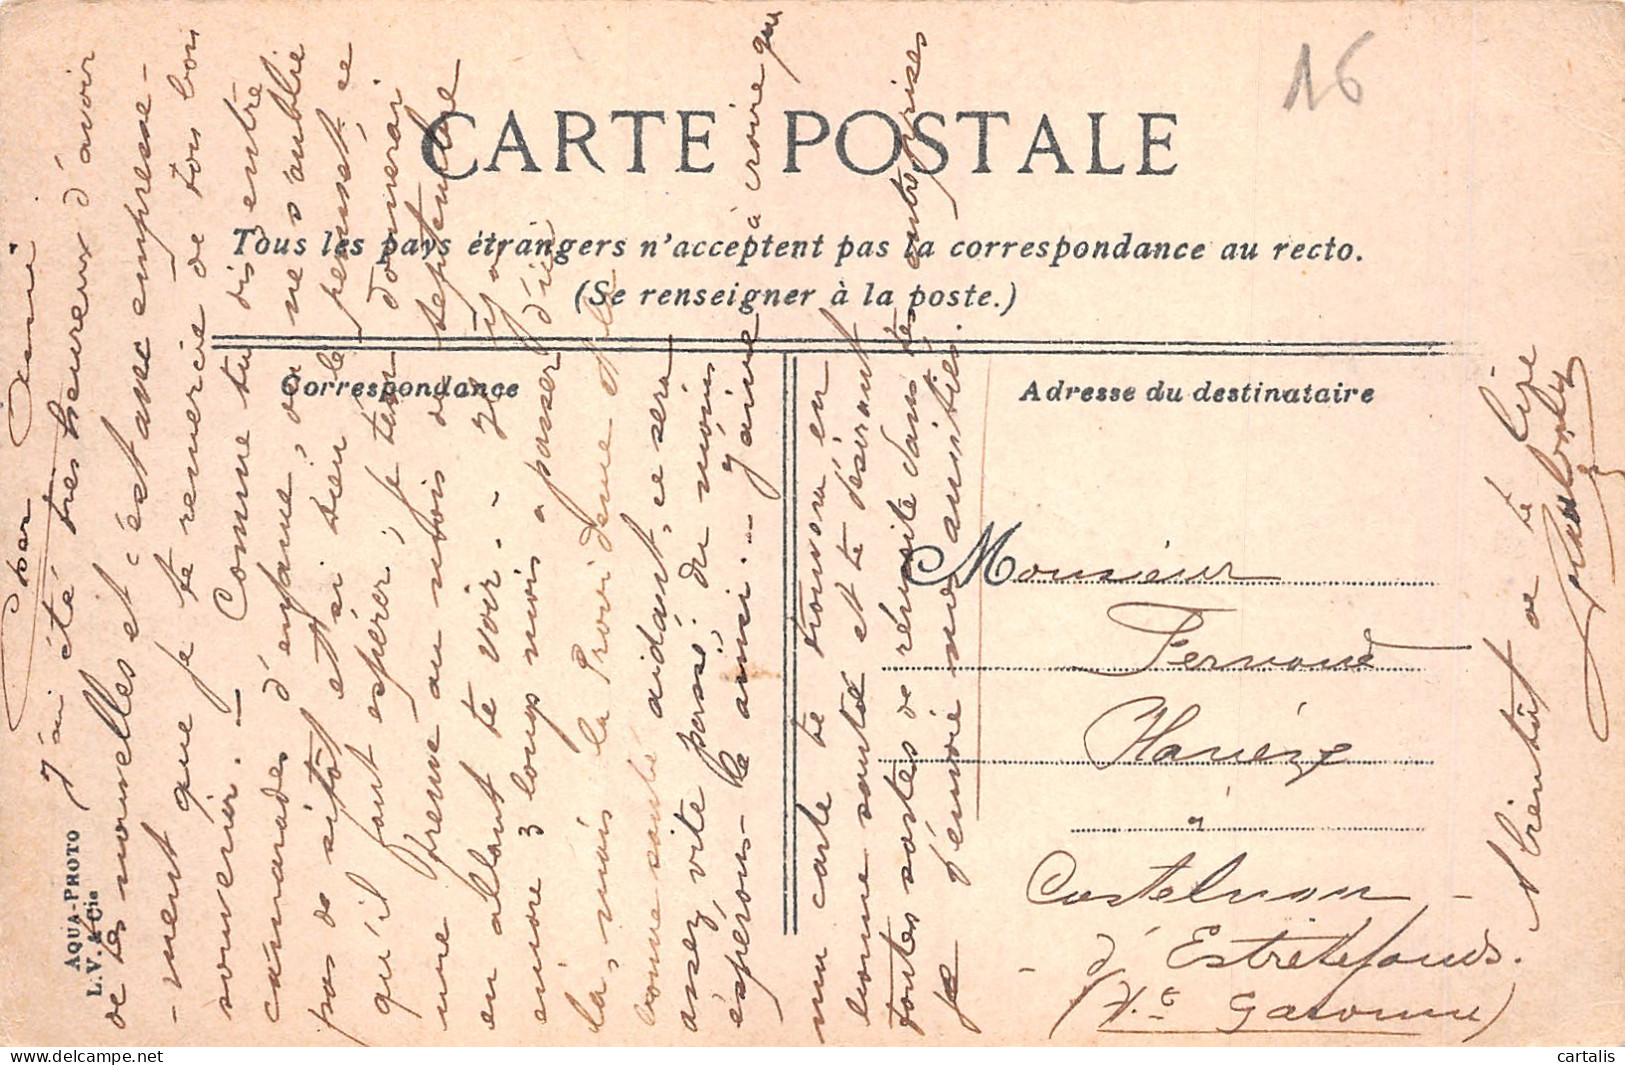 CARTE POSTALE
Tous les pays étrangers n'acceptent pas la correspondance au recto.
(Se renseigner à la poste.)
Correspondance
Adresse du destinataire
16
AQUA-PHOTO
L.V. & Cie
Cher Ami
J'ai été très heureux d'avoir
de tes nouvelles et c'est avec empresse-
-ment que je te remercie de ton bon
souvenir. - Comme tu dis entre
camarades d'enfance, on ne s'oublie
pas de sitôt et si bien le pensét ce
qu'il faut espérer, je t'en donnerai
une preuve au mois de septembre
en allant te voir. - Il y a
encore 3 longs mois à passer d'ici
là, mais la Providence et la
bonne santé aidant, ce sera
assez vite passé: du moins
espérons-le ami. - J'aime à croire que
ma carte te trouvera en
bonne santé et te désirant
toutes sortes de réussite dans tes entreprises
je t'envoie mes amitiés.
A bientôt de te lire
Monsieur
Fernand
à
Castelnau -
- d'Estretefonds.
(Hte Garonne)
cartalis